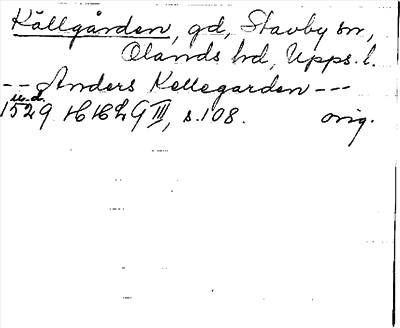 Källgården, gd, Stavby sn,
Olands hd, Upps. l.
-- Anders Kellegarden ---
u.d.
1529 HHhL 9 III, s. 108. orig.